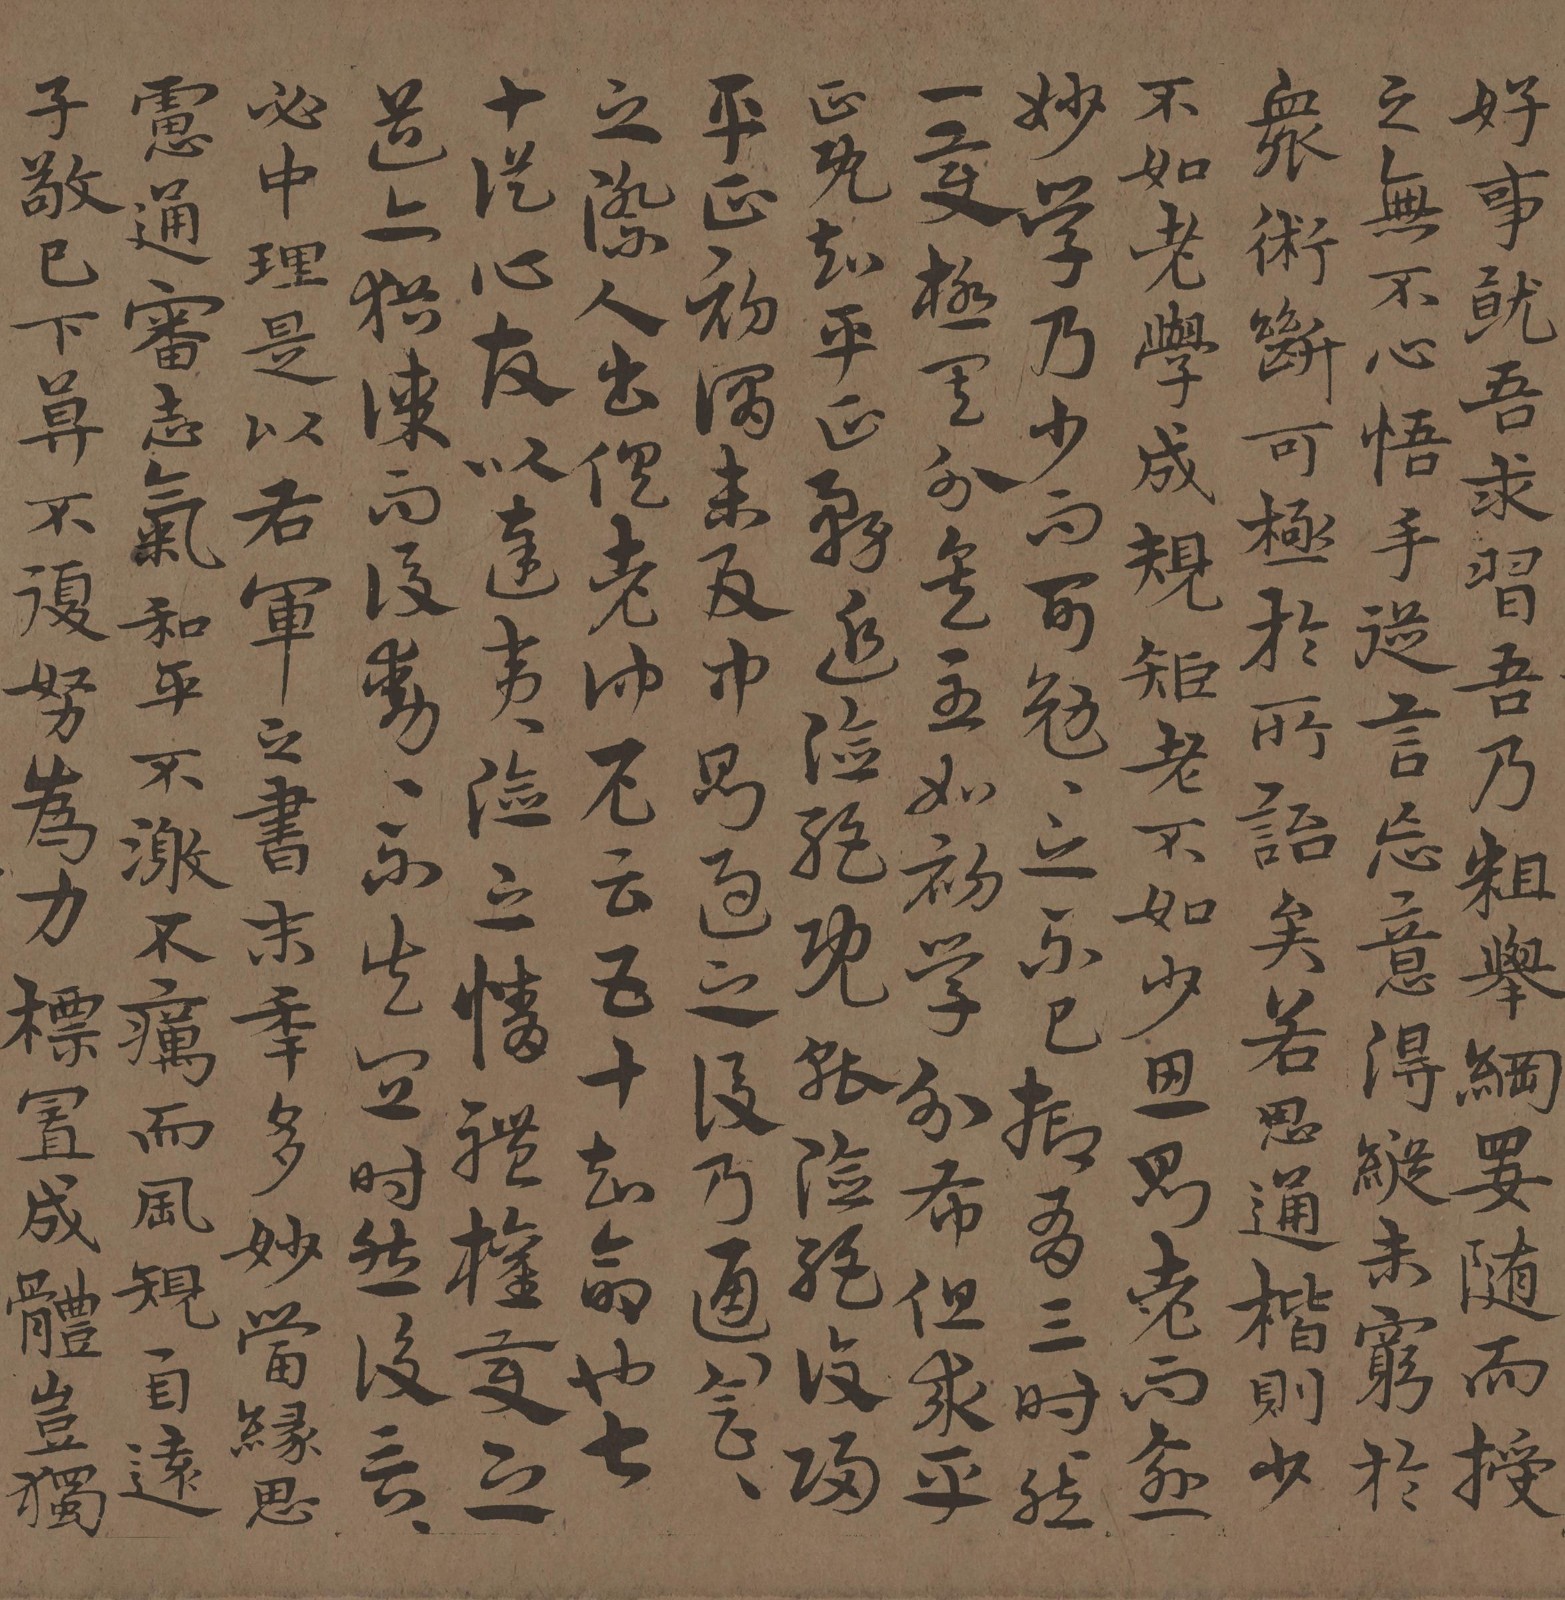 好事就吾求習吾乃粗舉綱要随而授
之無不心悟手從言忘意得縱未窮於
衆術斷可極於所詣矣若思通楷則少
不如老學成規矩老不如少思則老而愈
妙学乃少而可勉〻之不已抑有三时然
一變極其分矣至如初学分布但求平
正既知平正務追險絕既能險絕復歸
平正初謂未及中則過之後乃通會〻
之際人書俱老仲尼云五十知命也七
十從心故以達夷〻險之情體權變之
道亦猶謀而後動〻不失宜时然後言〻
必中理是以右軍之書末年多妙當緣思
慮通審志氣和平不激不癘而風規自遠
子敬已下算不複努為力標置成體豈獨